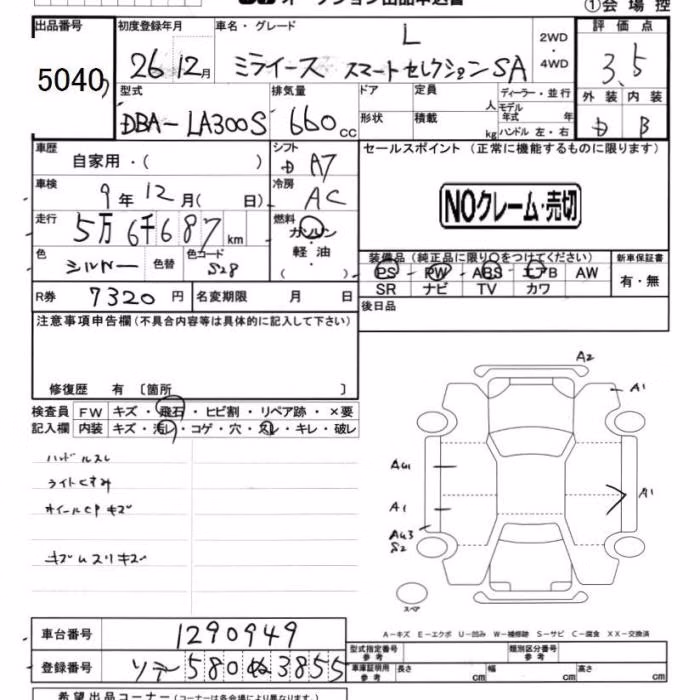 ①会場控
出品番号 5040
初度登録年月 26年12月
車名・グレード L
ミライース スマートセレクションSA
2WD・4WD
評価点 3.5
外装 D 内装 B
型式 DBA-LA300S
排気量 660cc
ドア 定員 人
ディーラー・並行
モデル年式 年式
形状 積載 kg
ハンドル 左・右
車歴 自家用・( )
シフト D A7
セールスポイント (正常に機能するものに限ります)
NOクレーム・売切
車検 9年12月( 日)
冷房 AC
走行 5万6千687km
燃料 ガソリン・軽油・( )
色 シルバー 色替 色コード S28
装備品(純正品に限り〇をつけてください) 新車保証書
PS PW ABS エアB AW 有・無
SR ナビ TV カワ
R券 7320円 名変期限 月 日
後日品
注意事項申告欄(不具合内容等は具体的に記入して下さい)
修復歴 有 〔箇所 〕
検査員記入欄
FW キズ・飛石・ヒビ割・リペア跡・×要
内装 キズ・汚レ・コゲ・穴・スレ・キレ・破レ
ハンドルスレ
ライトくすみ
ホイールCPキズ
キズムスリキズ
A2
A1
AU1
A1
A1
AU3
S2
スペア
A-キズ E-エクボ U-凹み W-補修跡 S-サビ C-腐食 XX-交換済
車台番号 1290949
登録番号 ソデ580ぬ3855
型式指定番号 参考 類別区分番号 参考
車庫証明用 参考 長さ cm 幅 cm 高さ cm
希望出品コーナー(コーナーは各会場により異なります。)